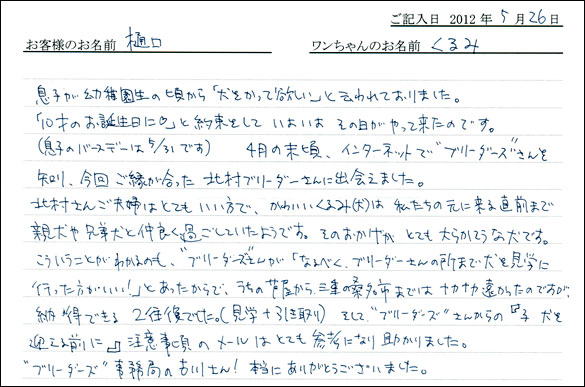 ご記入日 2012 年 5 月 26 日
お客様のお名前 樋口 ワンちゃんのお名前 くるみ
息子が幼稚園生の頃から「犬をかって欲しい」と云われておりました。
「10才のお誕生日に♡」と約束をして いよいよ その日がやって来たのです。
(息子のバースデーは5/31です) 4月の末頃、インターネットで“ブリーダーズ”さんを
知り、今回ご縁が合った 北村ブリーダーさんに出会えました。
北村さんご夫婦はとてもいい方で、かわいいくるみ(犬)は 私たちの元に来る直前まで
親犬や兄弟犬と仲良く過ごしていたようです。そのおかげか とても大らかそうな犬です。
こういうことがわかるのも、“ブリーダーズ”さんが「なるべく、ブリーダーさんの所まで犬を見学に
行った方がいい!」とあったからで、うちの芦屋から三重の桑名市までは ナカナカ遠かったのですが、
納得できる 2往復でした。(見学+引き取り) そして“ブリーダーズ”さんからの『子犬を
迎える前に』注意事項のメールはとても 参考になり 助かりました。
“ブリーダーズ”事務局の古川さん! 本当にありがとうございました。